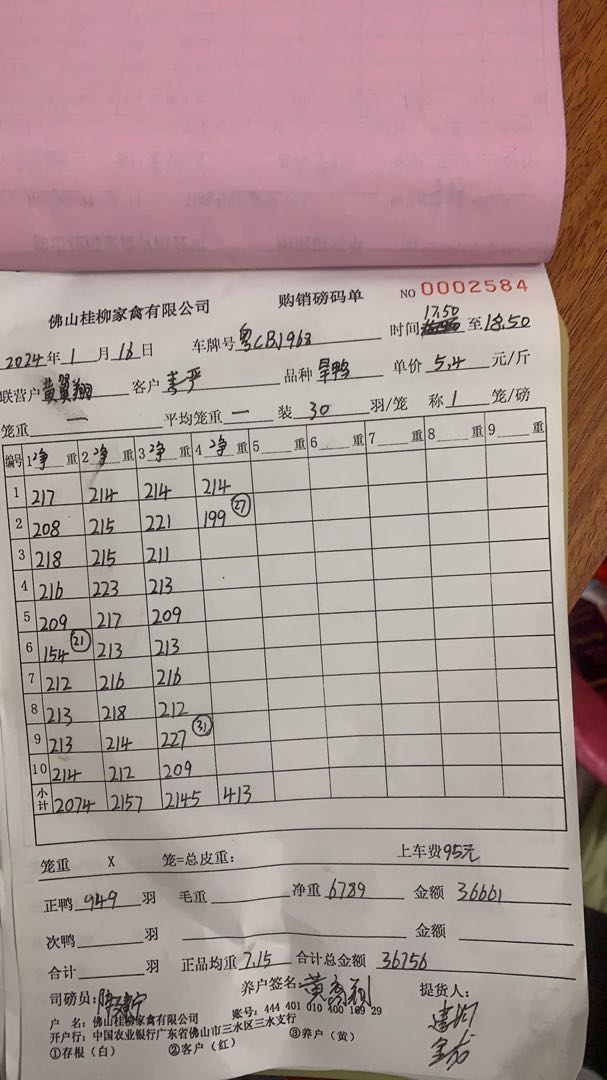 佛山桂柳家禽有限公司 购销磅码单 NO 0002584
17.50
2024年1月16日 车牌号粤CBJ968 时间 至18.50
联营户黄翼翔 客户 品种旱鸭 单价5.4元/斤
笼重一 平均笼重一 装30羽/笼 称1笼/磅
编号 1净重 2净重 3净重 4净重 5重 6重 7重 8重 9重
1 217 214 214 214
2 208 215 221 199 27
3 218 215 211
4 216 223 213
5 209 217 209
6 154 21 213 213
7 212 216 216
8 213 218 212
9 213 214 227 31
10 214 212 209
小计 2074 2157 2145 413
笼重 X 笼=总皮重: 上车费95元
正鸭949羽 毛重 净重6789 金额36661
次鸭 羽 金额
合计 羽 正品均重7.15 合计总金额36756
司磅员: 养户签名: 提货人:
户 名: 佛山桂柳家禽有限公司 账号: 444 401 010 400 169 29
开户行: 中国农业银行广东省佛山市三水区三水支行
①存根(白) ②客户(红) ③养户(黄)